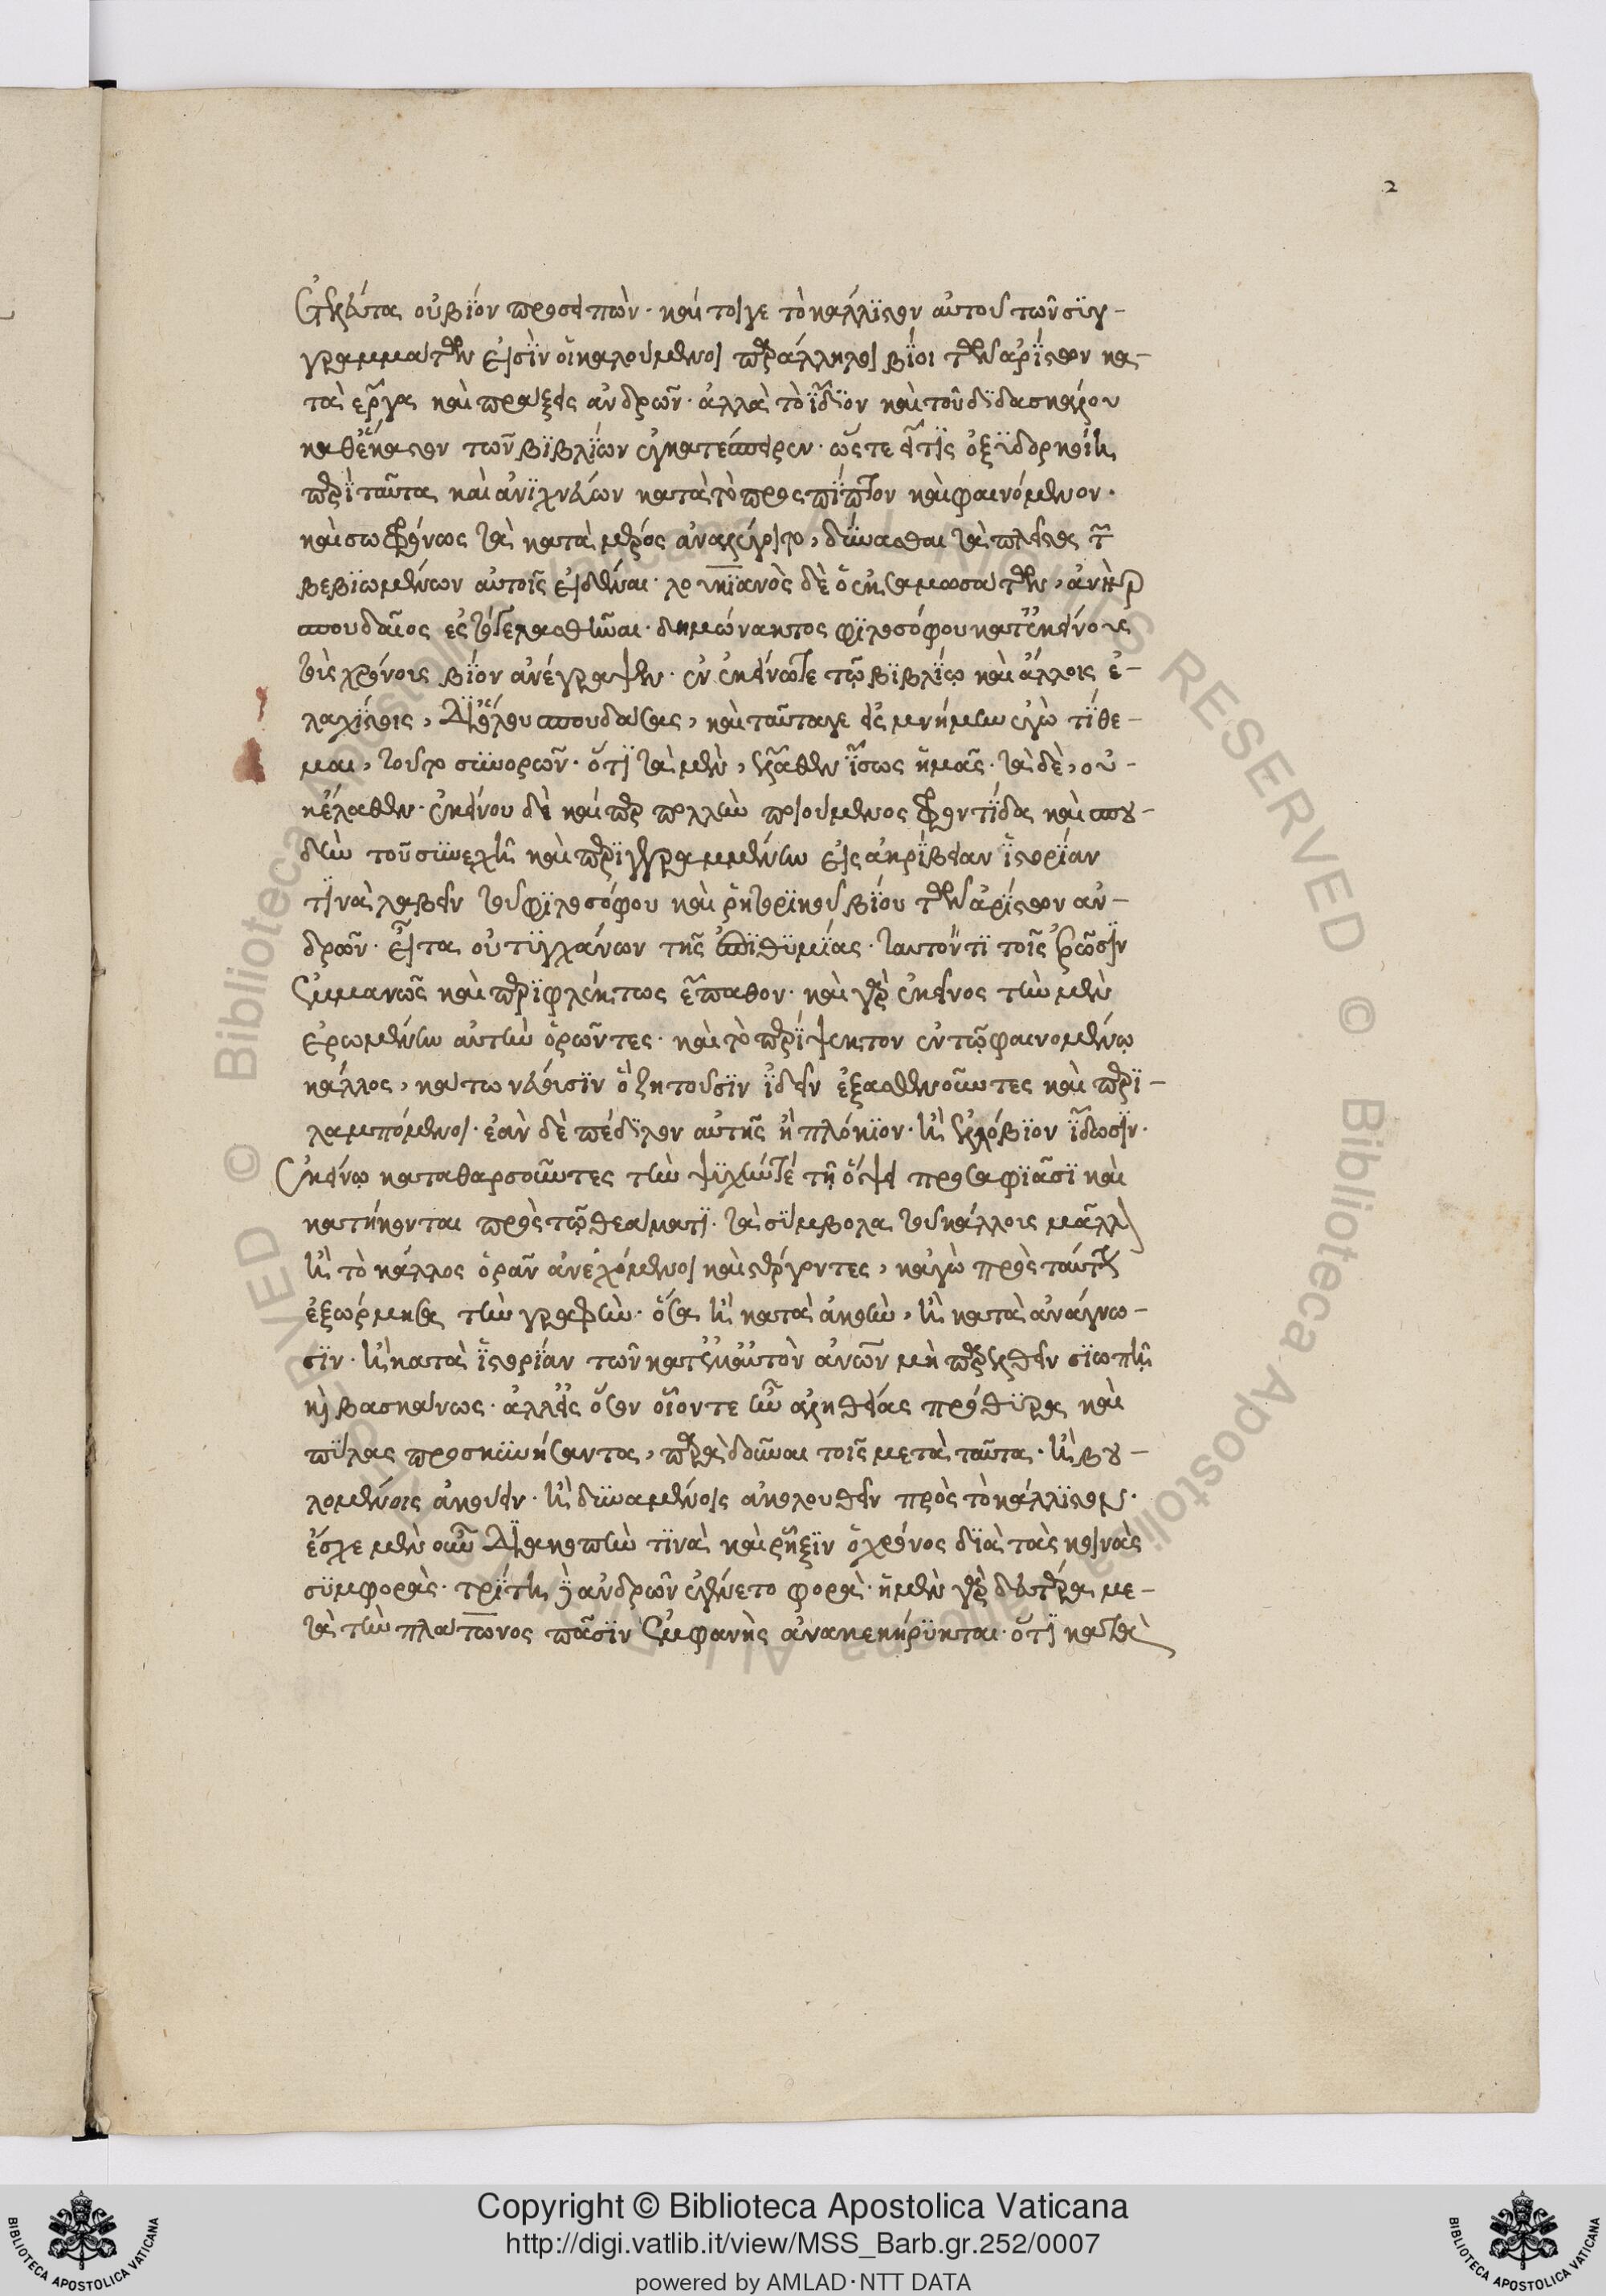 2
ἐκλύτα οὐ βίον προσειπὼν· καί τοι γε τὸ κάλλιστον αὐτοῦ τῶν συγ-
γραμμάτων εἰσὶν οἱ καλούμενοι παράλληλοι βίοι τῶν ἀρίστων κα-
τὰ ἔργα καὶ πράξεις ἀνδρῶν· ἀλλὰ τὸ ἴδιον καὶ τοῦ διδασκάλου
καθ' ἕκαστον τῶν βιβλίων ἐγκατέσπειρεν· ὥστε εἴ τις ὀξυδορκοίη
περὶ ταῦτα καὶ ἀνιχνεύων κατὰ τὸ προσπίπτον καὶ φαινόμενον·
καὶ σωφρόνως τὰ κατὰ μέρος ἀναλέγοιτο, δύνασθαι τὰ πλεῖστα τῶν
βεβιωμένων αὐτοῖς εἰδέναι· λουκιανὸς δὲ ὁ ἐκ σαμοσάτων, ἀνὴρ
σπουδαῖος ἐς τὸ γελασθῆναι· δημώνακτος φιλοσόφου κατ' ἐκείνους
τοὺς χρόνους βίον ἀνέγραψεν· ἐν ἐκείνῳ τε τῷ βιβλίῳ καὶ ἄλλοις ἐ-
λαχίστοις, δι' ὅλου σπουδάσας, καὶ ταῦτα γε εἰς μνήμην ἐγὼ τίθε-
μαι, τοῦτο συνορῶν· ὅτι τὰ μὲν, ἔλαθεν ἴσως ἡμᾶς· τὰ δὲ, οὐ-
κ ἔλαθεν· ἐκείνου δὲ καίπερ πολλὴν ποιούμενος φροντίδα καὶ σπου-
δὴν τοῦ συνεχῆ καὶ περιγεγραμμένην εἰς ἀκρίβειαν ἱστορίαν
τινὰ λαβεῖν τοῦ φιλοσόφου καὶ ῥητορικοῦ βίου τῶν ἀρίστων ἀν-
δρῶν· εἶτα οὐ τυγχάνων τῆς ἐπιθυμίας· ταυτόν τι τοῖς ἐρῶσιν
ἐμμανῶς καὶ περιφλέκτως ἔπαθον· καὶ γὰρ ἐκεῖνος τὴν μὲν
ἐρωμένην αὐτὴν ὁρῶντες· καὶ τὸ περίψεκτον ἐν τῷ φαινομένῳ
κάλλος, κάτω νεύουσιν ὃ ζητοῦσιν ἰδεῖν ἐξασθενοῦντες καὶ περι-
λαμπόμενοι· ἐὰν δὲ πέδιλον αὐτῆς ἢ πλόκιον· ἢ ἐλλόβιον ἴδωσιν·
ἐκείνῳ καταθαρσοῦντες τὴν ψυχήν τε τῇ ὄψει προσαφιᾶσι καὶ
κατήκονται πρὸς τῷ θεάματι· τὰ σύμβολα τοῦ κάλλους μᾶλλ
ἢ τὸ κάλλος ὁρᾶν ἀνεχόμενοι καὶ στέργοντες, κἀγὼ πρὸς ταύτην
ἐξώρμησα τὴν γραφὴν· ὅσα ἢ κατὰ ἀκοὴν, ἢ κατὰ ἀνάγνω-
σιν· ἢ κατὰ ἱστορίαν τῶν κατ' ἐμαυτὸν ἀνῶν μὴ παρελθεῖν σιωπῇ
καὶ βασκάνως· ἀλλ' εἰς ὅσον οἷόν τε ἦν ἀληθείας πρόθυρα καὶ
πύλας προσκυνήσαντα, παραδοῦναι τοῖς μετὰ ταῦτα· ἢ βου-
λομένοις ἀκούειν· ἢ δυναμένοις ἀκολουθεῖν πρὸς τὸ κάλλιστον·
ἔσχε μὲν οὖν διακοπὴν τινὰ καὶ ῥῆξιν ὁ χρόνος διὰ τὰς κοινὰς
συμφορὰς· τρίτη γε ἀνδρῶν ἐγένετο φορὰ· ἡ μὲν γὰρ δευτέρα με-
τὰ τὴν πλάτωνος πᾶσιν ἐμφανὴς ἀνακεκήρυκται· ὅτι κατὰ
Copyright © Biblioteca Apostolica Vaticana
http://digi.vatlib.it/view/MSS_Barb.gr.252/0007
powered by AMLAD·NTT DATA